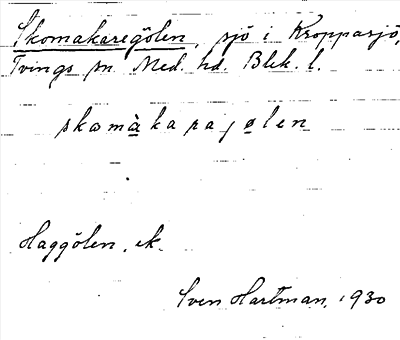 Skomakaregölen, sjö i Kroppasjö,
Tvings sn. Med. hd. Blek. l.
skomàkarajølen
Haggölen. ek.
Sven Hartman, 1930